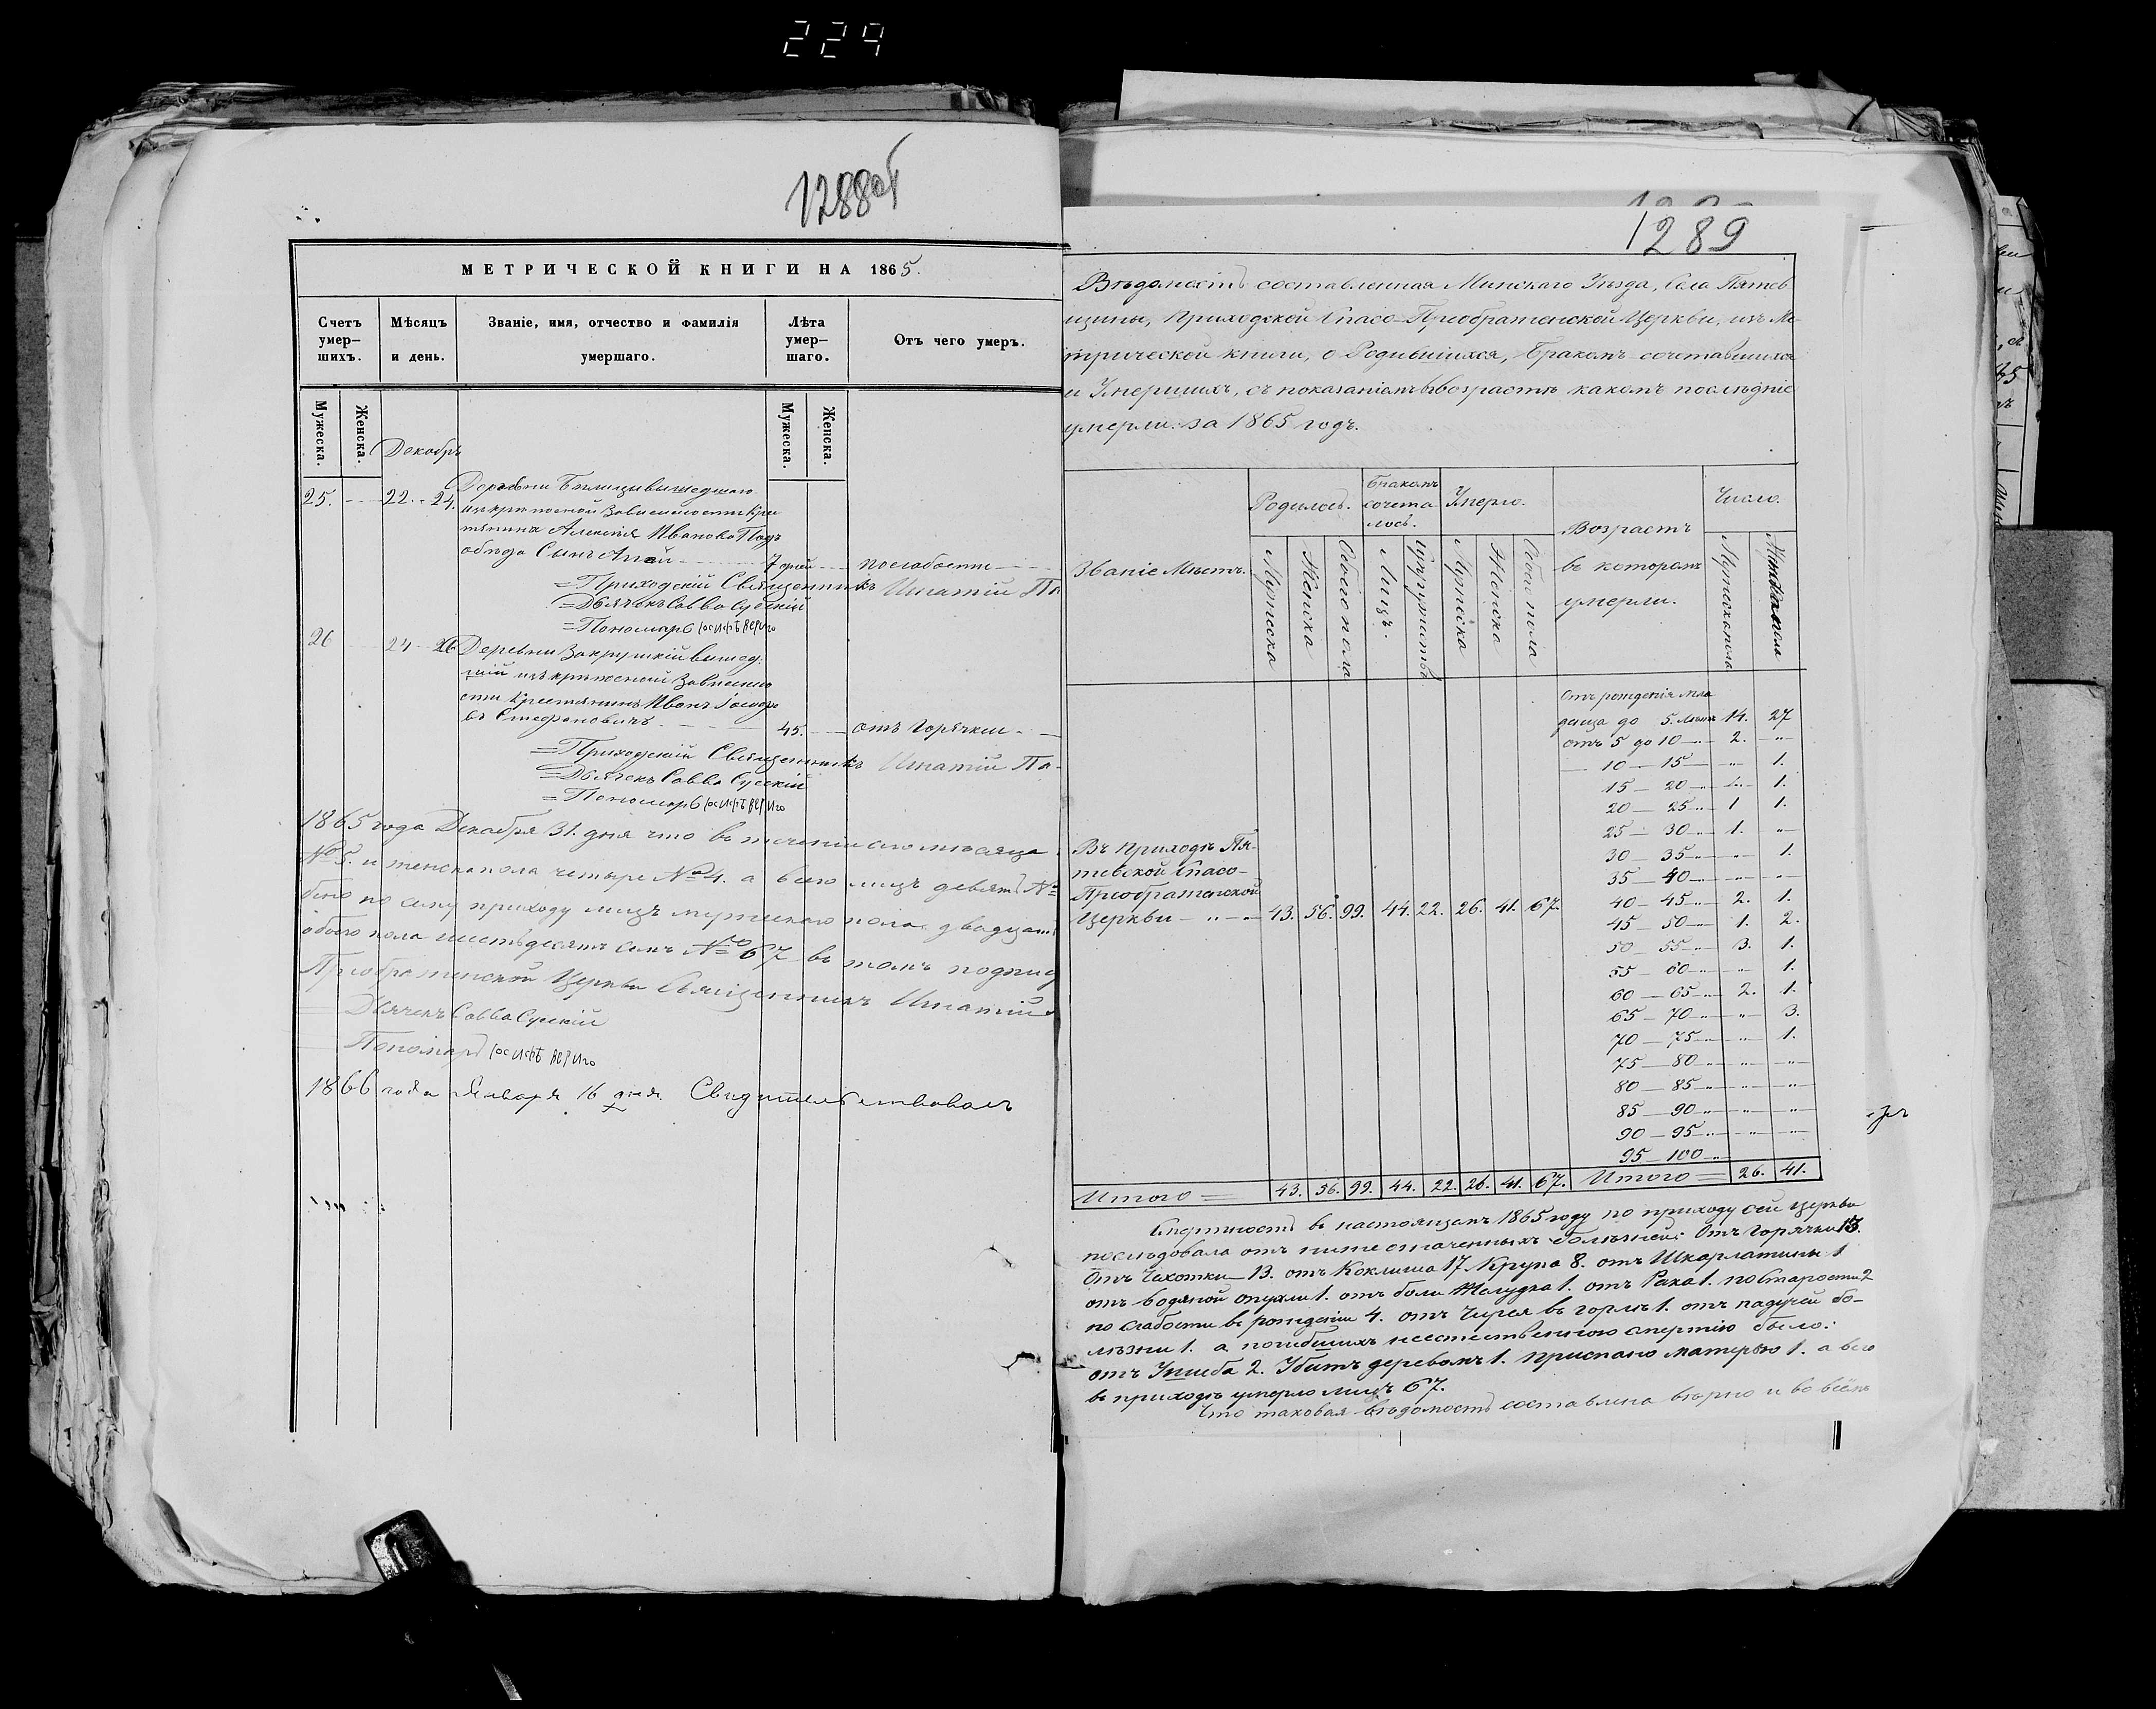 229
1288об
МЕТРИЧЕСКОЙ КНИГИ НА 1865.
Счетъ умер–шихъ.
Мѣсяцъ и день.
Званіе, имя, отчество и фамилія умершаго.
Лѣта умер–шаго.
Отъ чего умеръ.
Мужеска.
Женска.
Мужеска.
Женска.
Декабрь
25. 22. 24. Деревни вышедшаго
изъ крѣпостной зависимости кре
стянина Алексія Иванова
Сынъ 7 дней по слабости
=Приходскій Священникъ Игнатій
=Дьячекъ Савва Сускій
=Пономарь Іосифъ Вериго
26 24 26 Деревни вышед
шій изъ крѣпостной зависимо
сти крестянинъ Иванъ
въ Стефановичъ 45. отъ горячки
=Приходскій Священникъ Игнатій
=Дьячекъ Савва Сускій
=Пономарь Іосифъ Вериго
1865 года Декабря 31. дня что въ теченіи сего мѣсяца
№ 5. и женска пола четыре № 4. а всего лицъ девять №
по сему приходу лицъ мужескаго пола двадцать
обоего пола шестьдесятъ семь № 67 въ томъ
Преображенской Церкви Священникъ Игнатій
Дьячекъ Савва Сускій
Пономарь Іосифъ Вериго
1866 года Января 16 дня Свидѣтельствовалъ
1289
Вѣдомость составленная Минскаго Уѣзда, Села Пятев
щины, Приходской Спасо-Преображенской Церкви, изъ Ме-
трической книги, о Родившихся, Бракомъ сочетавшихся
и Умершихъ, съ показаніемъ въ возрастѣ какомъ послѣдніе
умерли за 1865 годъ.
Званіе Мѣстъ.
Родилось.
Бракомъ сочета лось.
Умерло.
Возрастъ въ которомъ умерли.
Число.
Мужеска
Женска
Обоего пола
Лицъ.
Супружествъ
Мужеска
Женска
Обоего пола
Мужеска пола
Женска пола
Отъ рожденія мла
денца до 5. лѣтъ 14. 27
отъ 5 до 10 2. "
10 — 15 " 1.
15 — 20 " 1.
20 — 25 1 1.
25 — 30 1. "
30 — 35 " 1.
35 — 40 " "
40 — 45 2. 1.
45 — 50 1. 2.
50 — 55 3. 1.
55 — 60 " 1.
60 — 65 2. 1.
65 — 70 " 3.
70 — 75 " 1.
75 — 80 " "
80 — 85 " "
85 — 90 " "
90 — 95 " "
95 — 100
Въ приходѣ Пя-
тевской Спасо-
Преображенской
Церкви 43. 56. 99. 44. 22. 26. 41. 67.
Итого 43. 56. 99. 44. 22. 26. 41. 67. Итого 26. 41.
Смертность въ настоящемъ 1865 году по приходу сей церкви
послѣдовала отъ ниже означенныхъ болѣзней: Отъ горячки 13.
Отъ Чахотки 13. отъ Коклюша 17. Крупа 8. отъ Шкарлатины 1
отъ водяной опухли 1. отъ боли Желудка 1. отъ Рака 1. по Старости 2
по слабости въ рожденіи 4. отъ Чирея въ горлѣ 1. отъ падучей бо-
лѣзни 1. а погибшихъ неестественною смертію было:
отъ Ушиба 2. Убитъ деревомъ 1. приспано матерью 1. а всего
въ приходѣ умерло лицъ 67.
Что таковая вѣдомость составлена вѣрно и во всемъ